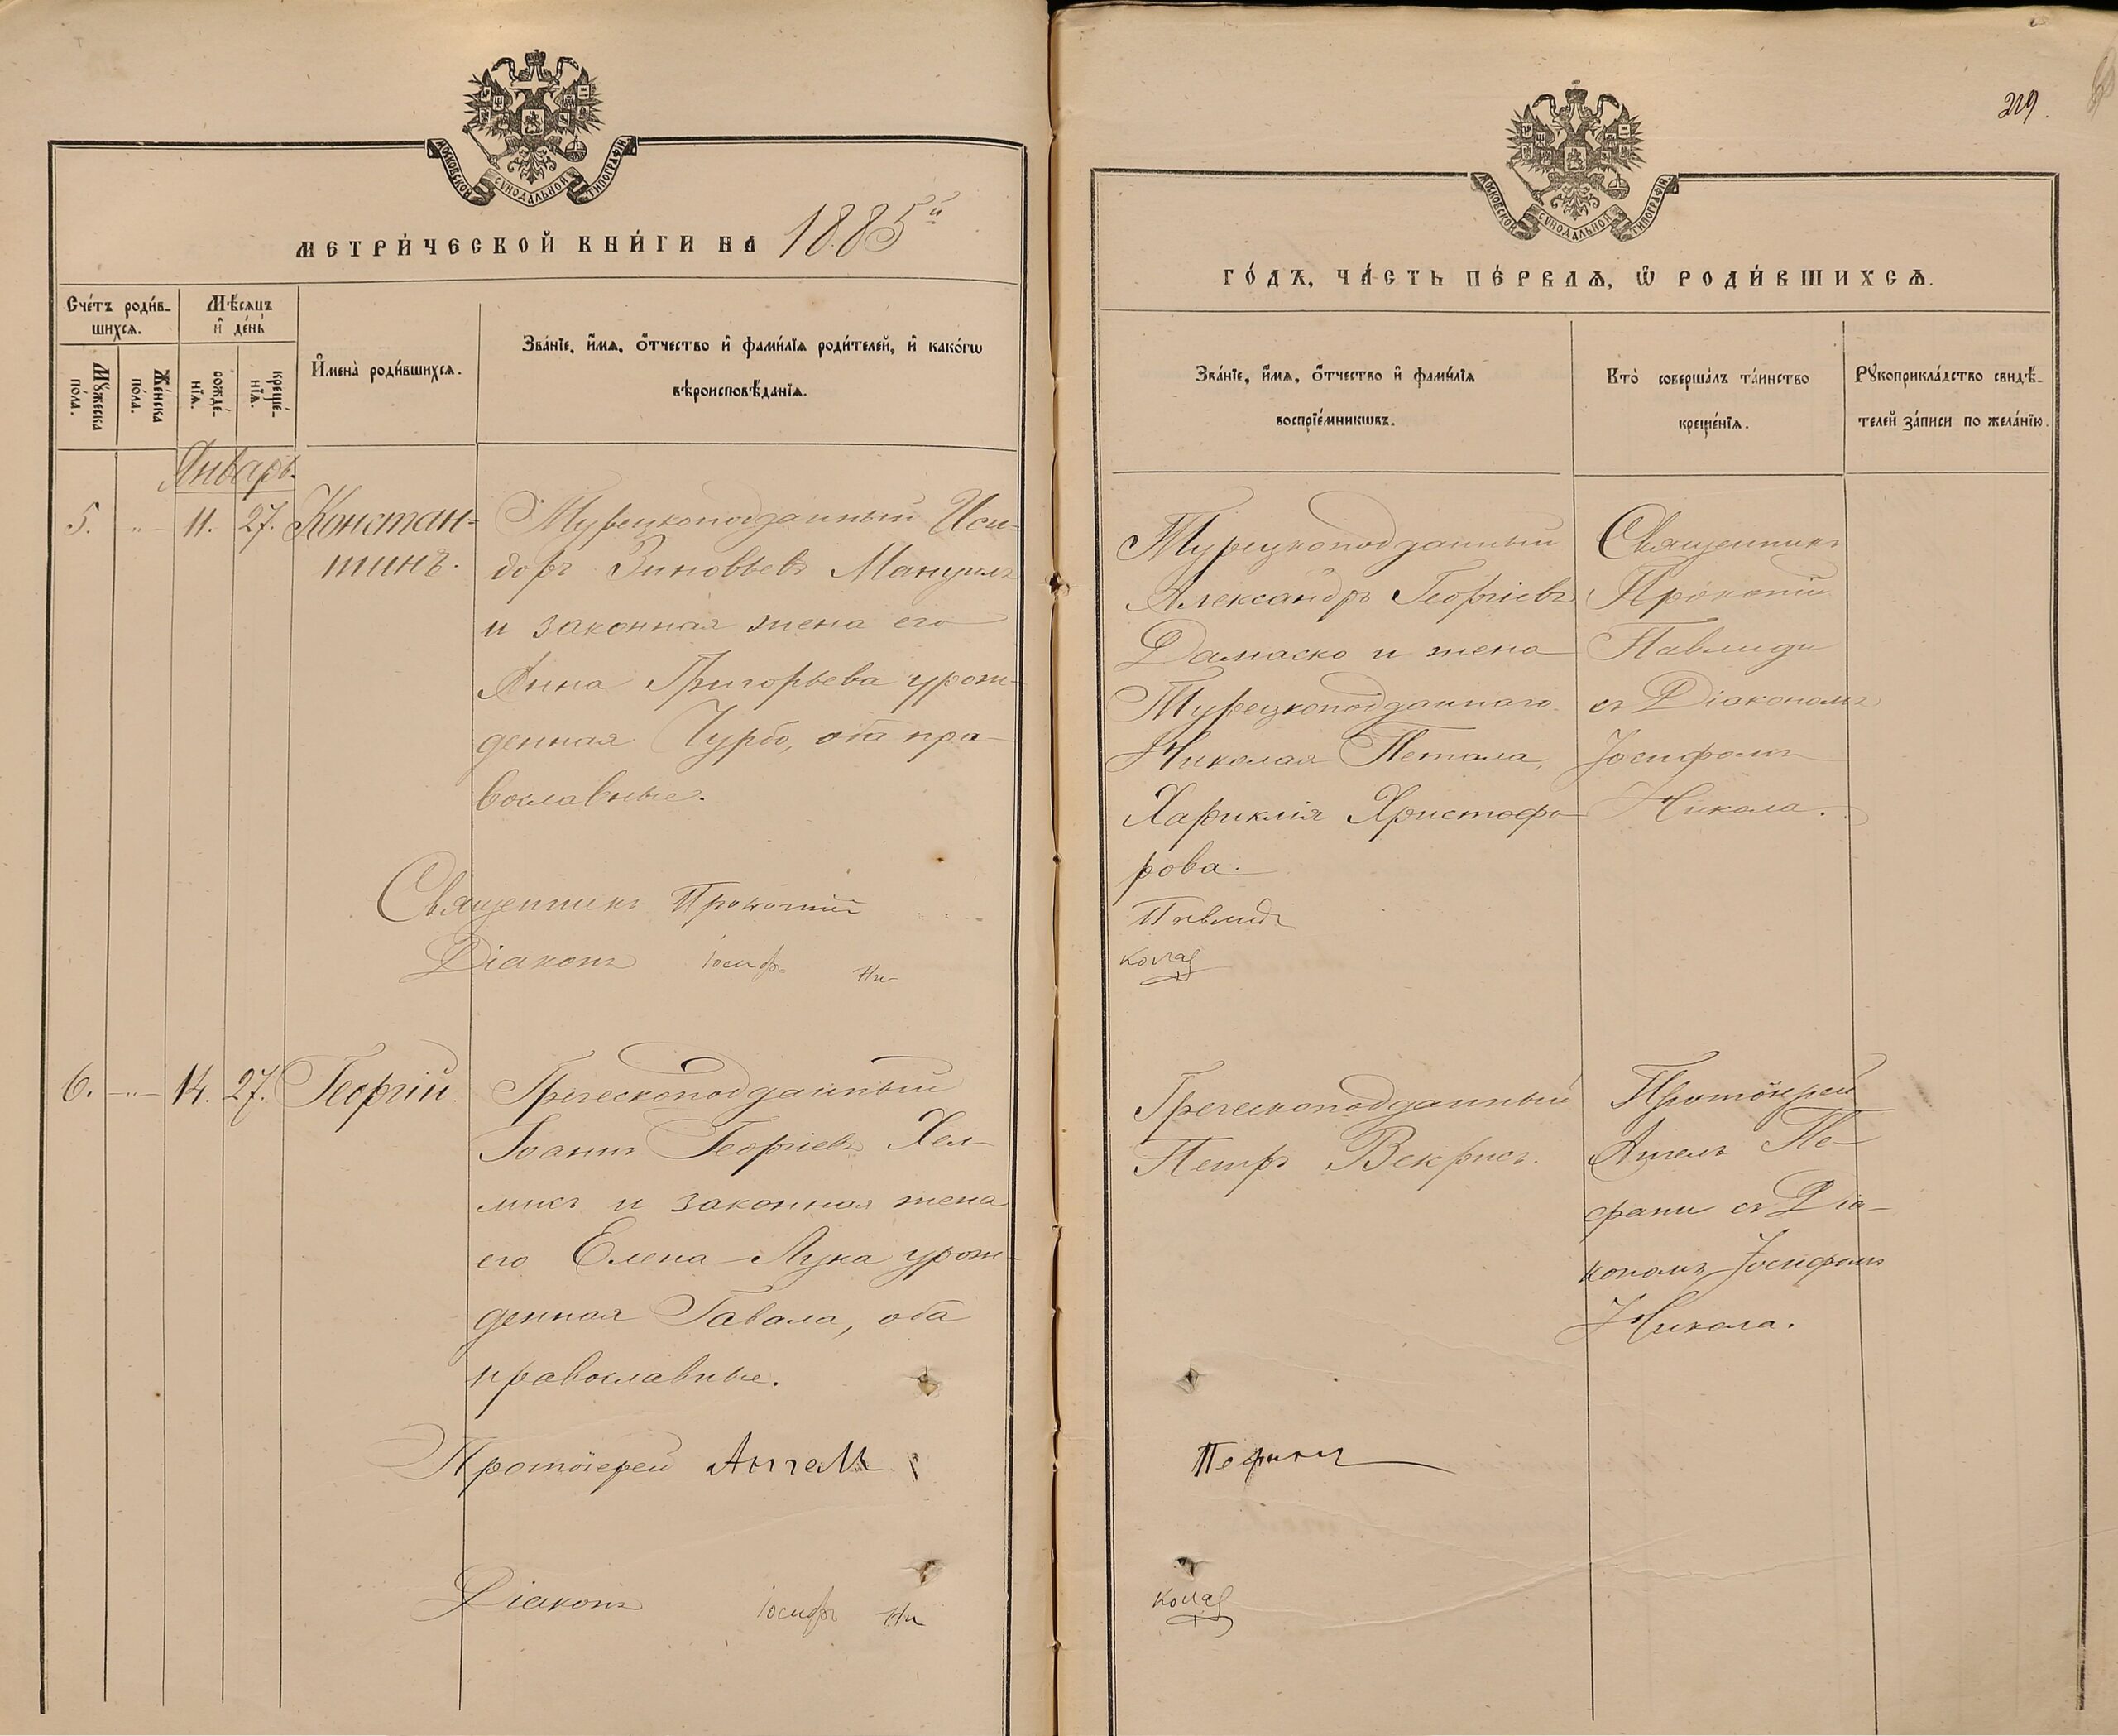 МОСКОВСКОЙ СѴНОДАЛЬНОЙ ТИПОГРАФІИ
МЕТРИ́ЧЕСКОЙ КНИ́ГИ НА 1885й
Сче́тъ роди́в-
шихсѧ.
Мѣ́сѧцъ
и҆ де́нь
Мꙋ́жеска
по́ла.
Же́нска
по́ла.
рожде́-
нїѧ.
креще́-
нїѧ.
И҆мена̀ роди́вшихсѧ.
Зва́нїе, и҆́мѧ, ѻ҆́тчество и҆ фами́лїѧ роди́телей, и҆ како́гѡ
вѣроисповѣ́данїѧ.
Январь.
5. „ 11. 27. Констан-
тинъ.
Турецкоподданный Иси-
доръ Зиновьевъ
и законная жена его
Анна Григорьева урож-
денная Чурбо, оба пра-
вославные.
Священникъ Прокопій
Діаконъ Іосифъ Ни-
6. „ 14. 27. Георгій.
Греческоподданный
Іоаннъ Георгіевъ Хел-
мисъ и законная жена
его Елена Лука урож-
денная Гавала, оба
православные.
Протоіерей Ангелъ
Діаконъ Іосифъ Ни
219.
МОСКОВСКОЙ СѴНОДАЛЬНОЙ ТИПОГРАФІИ
ГО́ДЪ, ЧА́СТЬ ПЕ́РВАѦ, Ѡ҆ РОДИ́ВШИХСѦ.
Зва́нїе, и҆́мѧ, ѻ҆́тчество и҆ фами́лїѧ
воспрїе́мникѡвъ.
Кто̀ соверша́лъ та́инство
креще́нїѧ.
Рꙋкоприкла́дство свидѣ́-
телей за́писи по жела́нїю.
Турецкоподданный
Александръ Георгіевъ
Дамаско и жена
Турецкоподданнаго
Николая Петала,
Хариклія Христофо-
рова.
Павлиди
кола
Священникъ
Прокопій
Павлиди
съ Діакономъ
Іосифомъ
Никола.
Греческоподданный
Петръ Векрисъ.
Протоіерей
Ангелъ Пе-
фани съ Діа-
кономъ Іосифомъ
Никола.
Пефани
кола